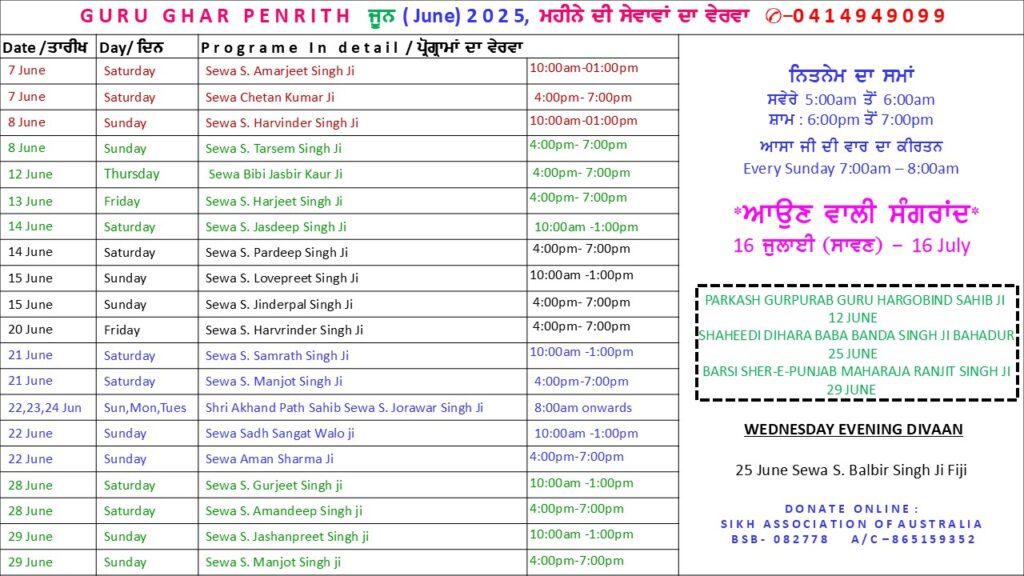 GURU GHAR PENRITH ਜੂਨ (June) 2025, ਮਹੀਨੇ ਦੀ ਸੇਵਾਵਾਂ ਦਾ ਵੇਰਵਾ ✆–0414949099
Date /ਤਾਰੀਖ Day/ ਦਿਨ Programe In detail / ਪ੍ਰੋਗ੍ਰਾਮਾਂ ਦਾ ਵੇਰਵਾ
7 June Saturday Sewa S. Amarjeet Singh Ji 10:00am-01:00pm
7 June Saturday Sewa Chetan Kumar Ji 4:00pm- 7:00pm
8 June Sunday Sewa S. Harvinder Singh Ji 10:00am-01:00pm
8 June Sunday Sewa S. Tarsem Singh Ji 4:00pm- 7:00pm
12 June Thursday Sewa Bibi Jasbir Kaur Ji 4:00pm- 7:00pm
13 June Friday Sewa S. Harjeet Singh Ji 4:00pm- 7:00pm
14 June Saturday Sewa S. Jasdeep Singh Ji 10:00am -1:00pm
14 June Saturday Sewa S. Pardeep Singh Ji 4:00pm- 7:00pm
15 June Sunday Sewa S. Lovepreet Singh Ji 10:00am -1:00pm
15 June Sunday Sewa S. Jinderpal Singh Ji 4:00pm- 7:00pm
20 June Friday Sewa S. Harvrinder Singh Ji 4:00pm- 7:00pm
21 June Saturday Sewa S. Samrath Singh Ji 10:00am -1:00pm
21 June Saturday Sewa S. Manjot Singh Ji 4:00pm-7:00pm
22,23,24 Jun Sun,Mon,Tues Shri Akhand Path Sahib Sewa S. Jorawar Singh Ji 8:00am onwards
22 June Sunday Sewa Sadh Sangat Walo ji 10:00am -1:00pm
22 June Sunday Sewa Aman Sharma Ji 4:00pm-7:00pm
28 June Saturday Sewa S. Gurjeet Singh ji 10:00am -1:00pm
28 June Saturday Sewa S. Amandeep Singh ji 4:00pm-7:00pm
29 June Sunday Sewa S. Jashanpreet Singh ji 10:00am -1:00pm
29 June Sunday Sewa S. Manjot Singh ji 4:00pm-7:00pm
ਨਿਤਨੇਮ ਦਾ ਸਮਾਂ
ਸਵੇਰੇ 5:00am ਤੋਂ 6:00am
ਸ਼ਾਮ : 6:00pm ਤੋਂ 7:00pm
ਆਸਾ ਜੀ ਦੀ ਵਾਰ ਦਾ ਕੀਰਤਨ
Every Sunday 7:00am – 8:00am
*ਆਉਣ ਵਾਲੀ ਸੰਗਰਾਂਦ*
16 ਜੁਲਾਈ (ਸਾਵਣ) – 16 July
PARKASH GURPURAB GURU HARGOBIND SAHIB JI
12 JUNE
SHAHEEDI DIHARA BABA BANDA SINGH JI BAHADUR
25 JUNE
BARSI SHER-E-PUNJAB MAHARAJA RANJIT SINGH JI
29 JUNE
WEDNESDAY EVENING DIVAAN
25 June Sewa S. Balbir Singh Ji Fiji
DONATE ONLINE :
SIKH ASSOCIATION OF AUSTRALIA
BSB- 082778 A/C –865159352